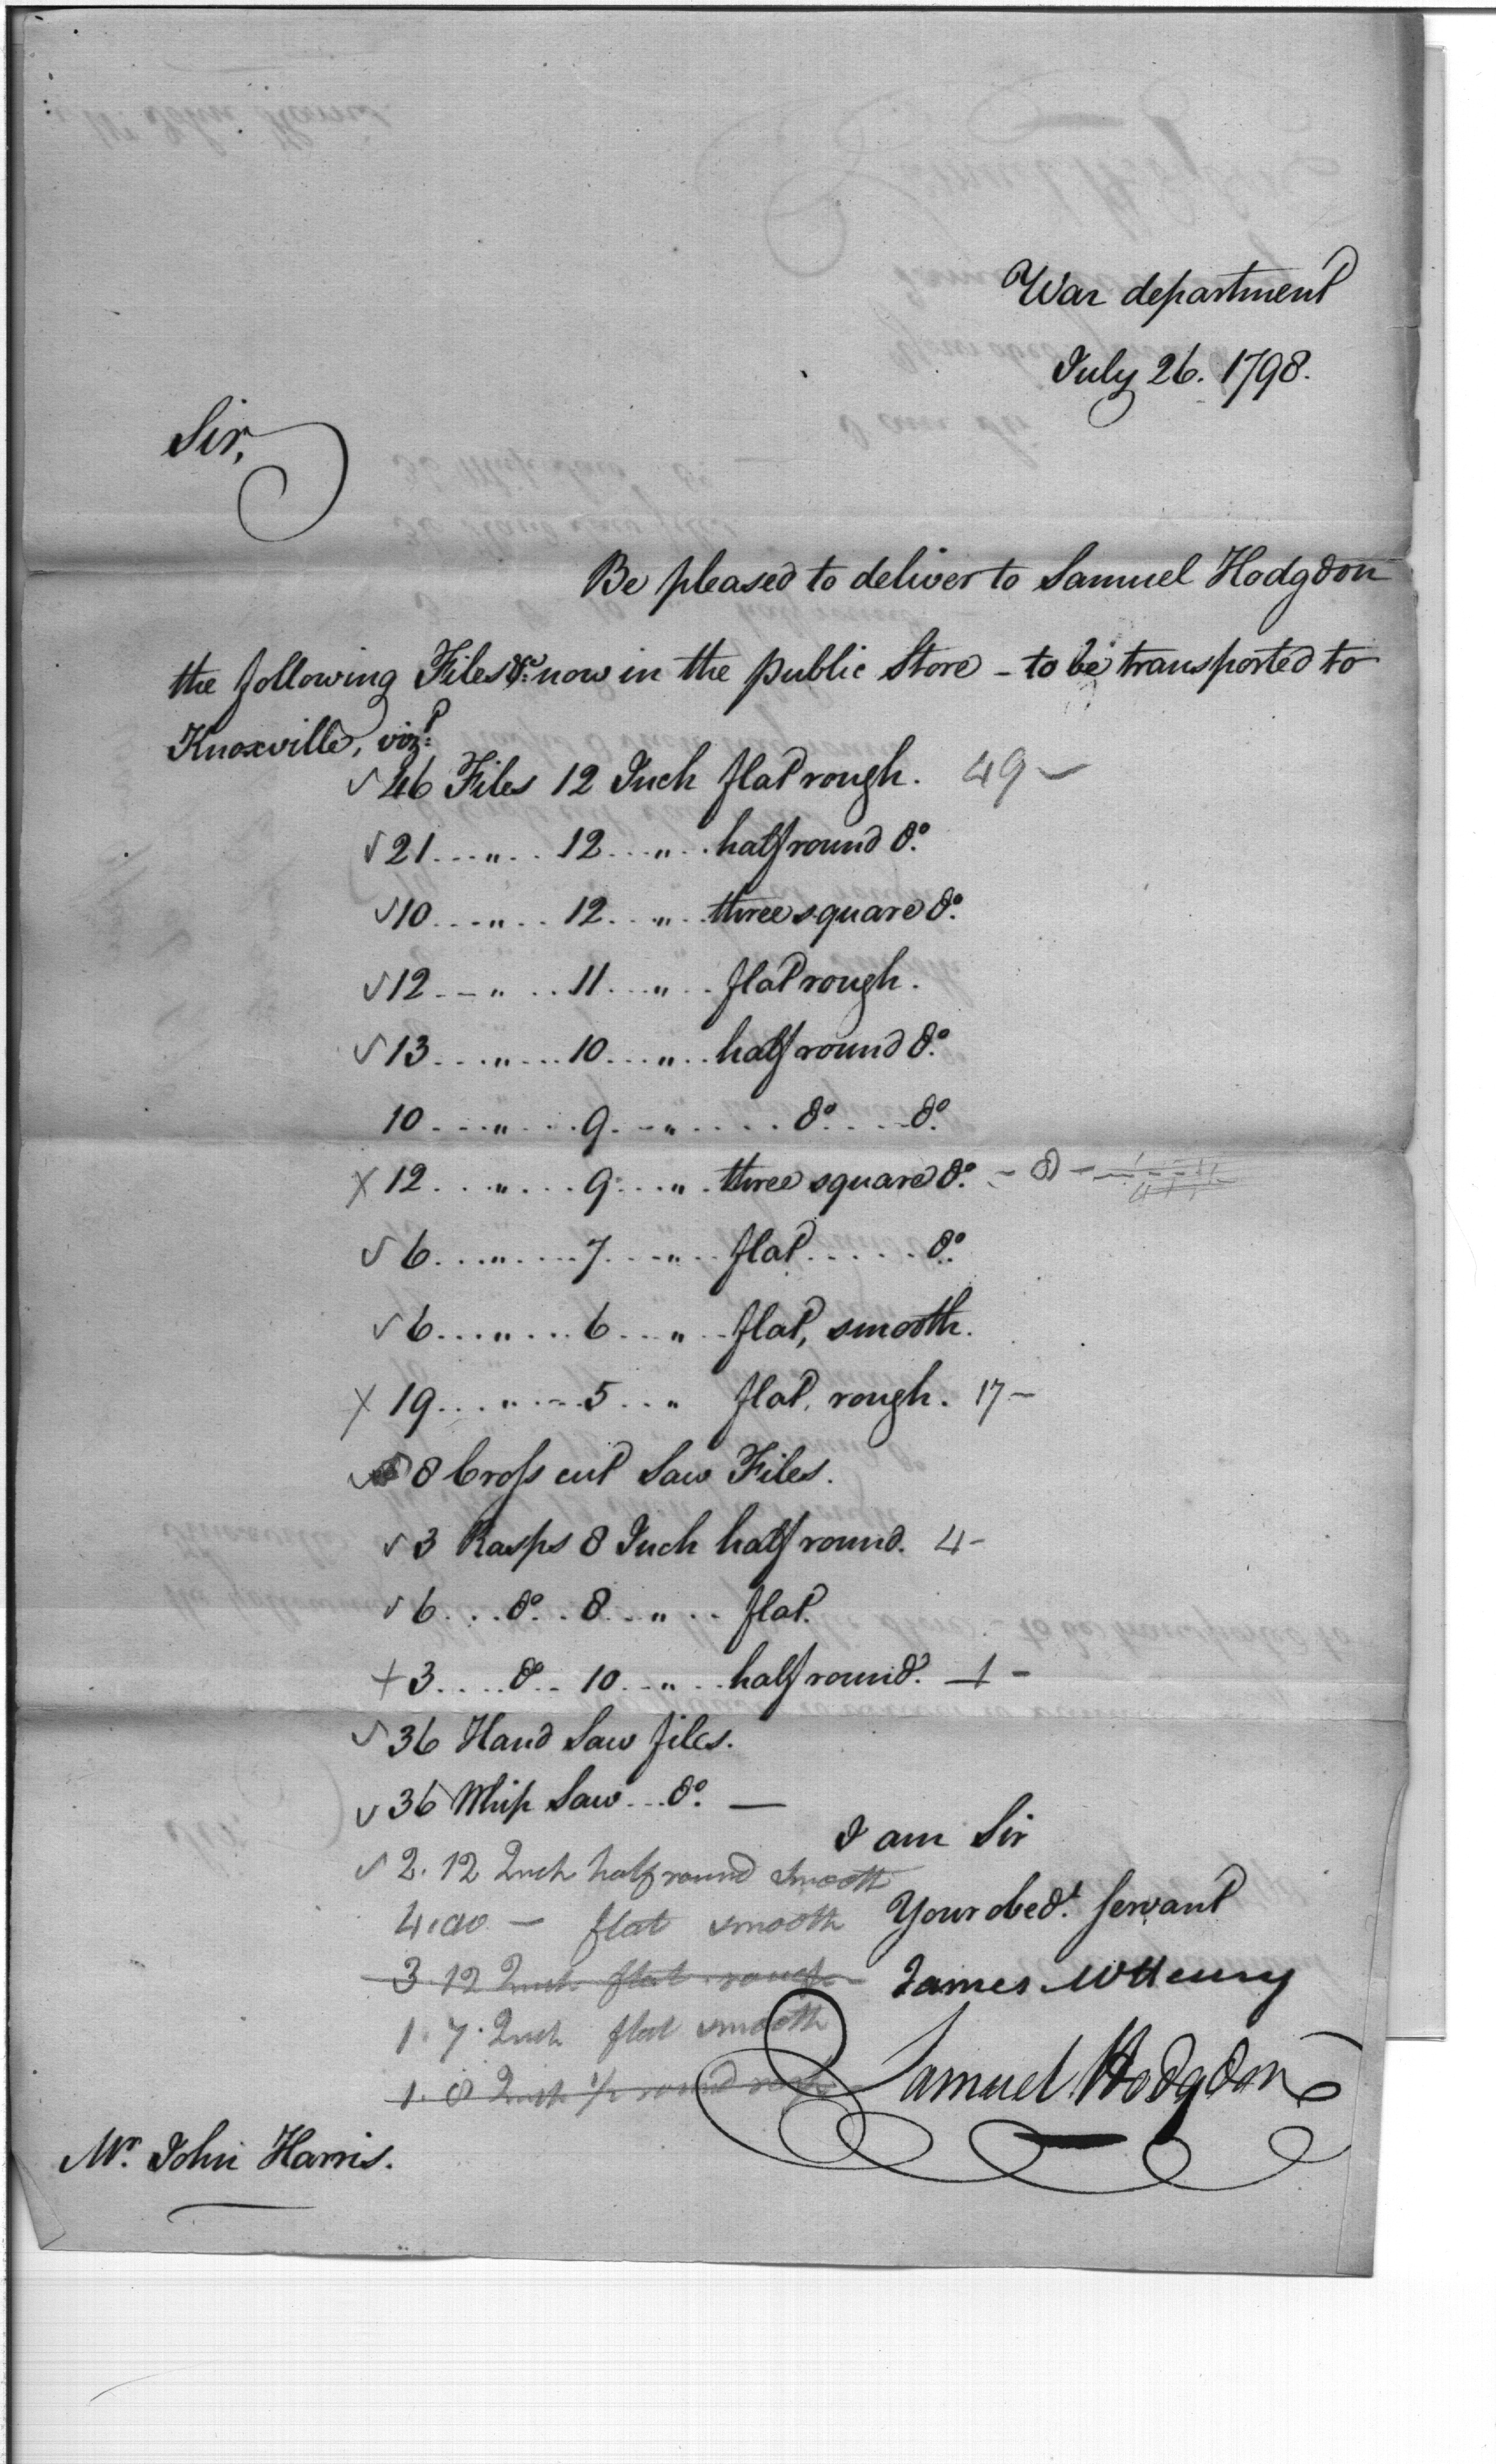 War department
July 26. 1798.
Sir,
Be pleased to deliver to Samuel Hodgdon
the following Files &c. now in the public Store - to be transported to
Knoxville, vizt:
✓ 46 Files 12 Inch flat rough. 49 -
✓ 21 ... " .. 12 ... " .. half round do.
✓ 10 ... " .. 12 ... " .. three square do.
✓ 12 ... " .. 11 ... " .. flat rough.
✓ 13 ... " ... 10 ... " .. half round do.
10 ... " ... 9 ... " .... do .... do.
x 12 ... " ... 9 ... " . three square do. - 8 -
✓ 6 ... " ... 7 ... " .. flat ..... do.
✓ 6 ... " ... 6 ... " .. flat, smooth.
x 19 ... " ... 5 ... " flat, rough. 17 -
✓ 8 Cross cut Saw Files.
✓ 3 Rasps 8 Inch half round. 4 -
✓ 6 ... do .. 8 .. " .. flat.
+ 3 .... do .. 10 .. " .. half round. - 1 -
✓ 36 Hand Saw files.
✓ 36 Whip Saw ... do. —
I am Sir
✓ 2. 12 Inch half round smooth
Your obedt. servant
4. do - flat smooth
3. 12 Inch flat rough
James McHenry
1. 7. Inch flat smooth
Samuel Hodgdon
1. 8 Inch 1/2 round rasp
Mr. John Harris.